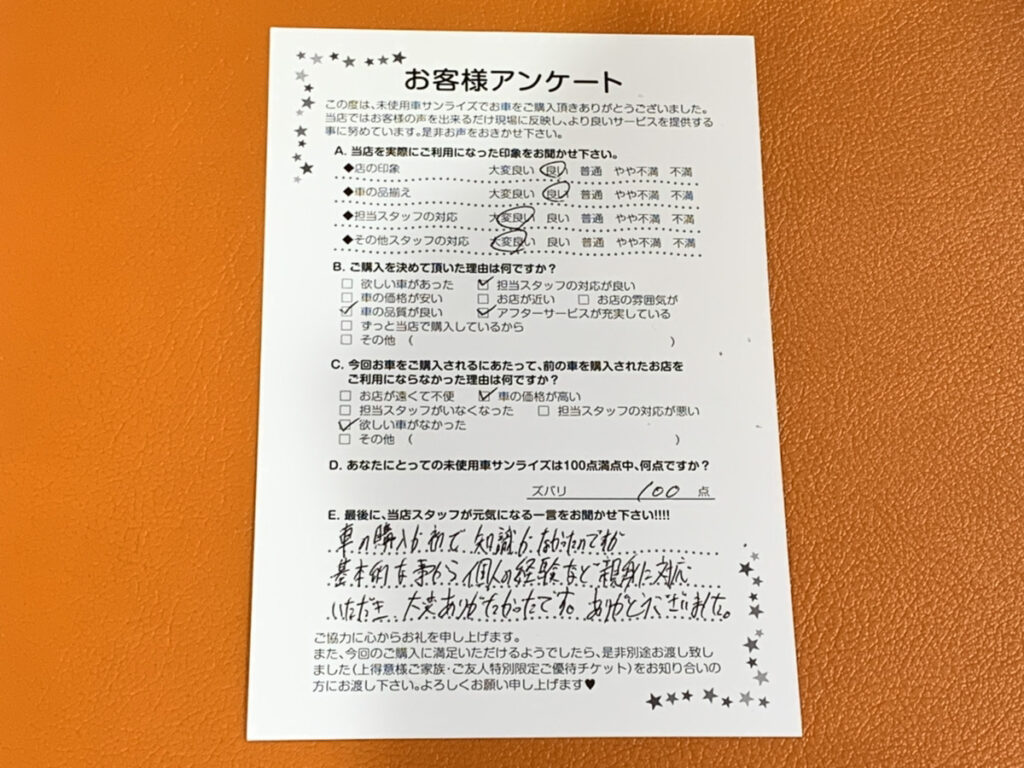 お客様アンケート
この度は、未使用車サンライズでお車をご購入頂きありがとうございました。
当店ではお客様の声を出来るだけ現場に反映し、より良いサービスを提供する
事に努めています。是非お声をおきかせ下さい。
A. 当店を実際にご利用になった印象をお聞かせ下さい。
◆店の印象 大変良い 良い 普通 やや不満 不満
◆車の品揃え 大変良い 良い 普通 やや不満 不満
◆担当スタッフの対応 大変良い 良い 普通 やや不満 不満
◆その他スタッフの対応 大変良い 良い 普通 やや不満 不満
B. ご購入を決めて頂いた理由は何ですか？
□ 欲しい車があった ☑ 担当スタッフの対応が良い
□ 車の価格が安い □ お店が近い □ お店の雰囲気が
☑ 車の品質が良い ☑ アフターサービスが充実している
□ ずっと当店で購入しているから
□ その他 ( )
C. 今回お車をご購入されるにあたって、前の車を購入されたお店を
ご利用にならなかった理由は何ですか？
□ お店が遠くて不便 ☑ 車の価格が高い
□ 担当スタッフがいなくなった □ 担当スタッフの対応が悪い
☑ 欲しい車がなかった
□ その他 ( )
D. あなたにとっての未使用車サンライズは100点満点中、何点ですか？
ズバリ 100 点
E. 最後に、当店スタッフが元気になる一言をお聞かせ下さい!!!!
車の購入が初で知識がなかったのですが
基本的な事から個人の経験など親身に対応
いただき大変ありがたかったです。ありがとうございました。
ご協力に心からお礼を申し上げます。
また、今回のご購入に満足いただけるようでしたら、是非別途お渡し致し
ました（上得意様ご家族・ご友人特別限定ご優待チケット）をお知り合いの
方にお渡し下さい。よろしくお願い申し上げます♥